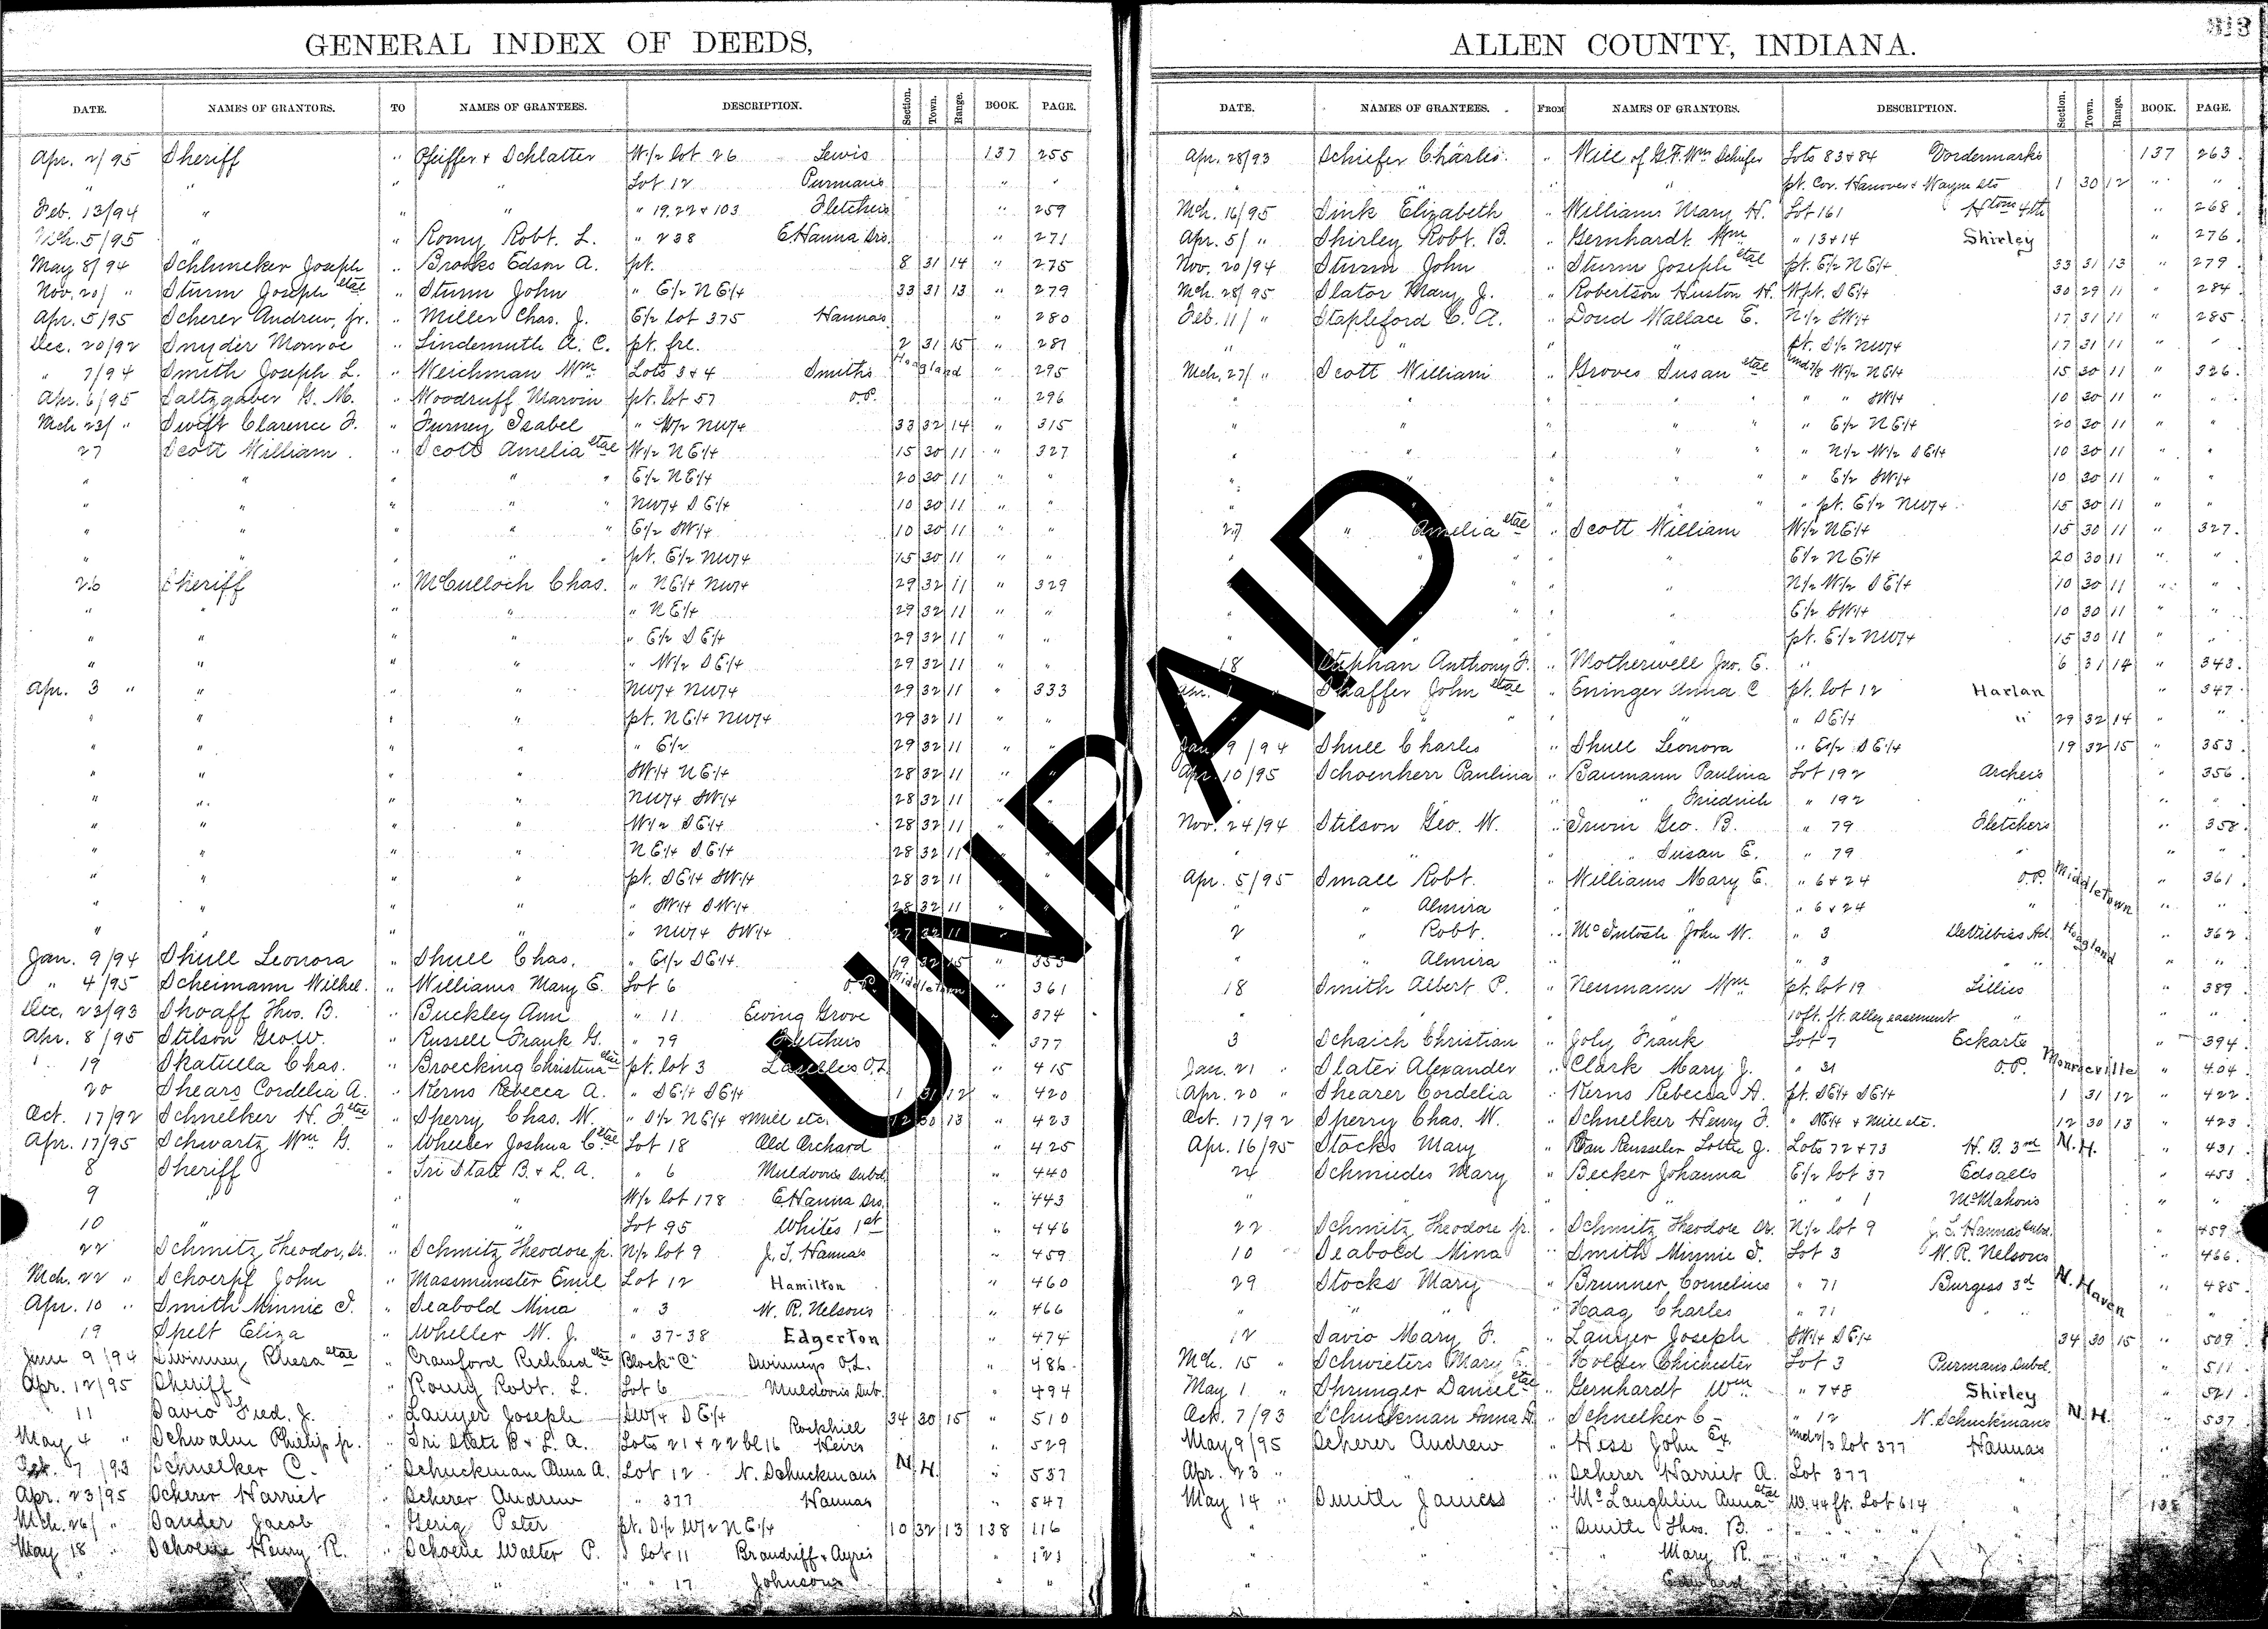 GENERAL INDEX OF DEEDS,
DATE. NAMES OF GRANTORS. TO NAMES OF GRANTEES. DESCRIPTION. Section. Town. Range. BOOK. PAGE.
Apr. 2/95 Sheriff " Pfeiffer & Schlatter W.1/2 lot 26 Lewis 137 255
" " " " Lot 12 Purmans " "
Feb. 13/94 " " " " 19, 22 & 103 Fletchers " 259
Mch. 5/95 " " Romy Robt. L. " 238 E. Hanna Srs. " 271
May 8/94 Schlmeker Joseph " Brooks Edson A. pt. 8 31 14 " 275
Nov. 20/ " Sturm Joseph etal " Sturm John " E1/2 NE1/4 33 31 13 " 279
Apr. 5/95 Scherer Andrew, Jr. " Miller Chas. J. E1/2 lot 375 Hannas " 280
Dec. 20/92 Snyder Monroe " Lindemuth A. C. pt. frl. 2 31 15 " 281
" 7/94 Smith Joseph L. " Weichman Wm Lots 3 & 4 Smiths Hoagland " 295
Apr. 6/95 Saltzgaber G. M. " Woodruff Marvin pt. lot 57 O.P. " 296
Mch 23/ " Swift Clarence F. " Furney Isabel " W1/2 NW1/4 33 32 14 " 315
27 Scott William " Scott Amelia etal W1/2 NE1/4 15 30 11 " 327
" " " " " E1/2 NE1/4 20 30 11 " "
" " " " " NW1/4 SE1/4 10 30 11 " "
" " " " " E1/2 SW1/4 10 30 11 " "
" " " " " pt. E1/2 NW1/4 15 30 11 " "
26 Sheriff " McCulloch Chas. " NE1/4 NW1/4 29 32 11 " 329
" " " " " NE1/4 29 32 11 " "
" " " " " E1/2 SE1/4 29 32 11 " "
" " " " " W1/2 SE1/4 29 32 11 " "
Apr. 3 " " " " NW1/4 NW1/4 29 32 11 " 333
" " " " pt. NE1/4 NW1/4 29 32 11 " "
" " " " " E1/2 29 32 11 " "
" " " " SW1/4 NE1/4 28 32 11 " "
" " " " NW1/4 SW1/4 28 32 11 "
" " " " W1/2 SE1/4 28 32 11
" " " " NE1/4 SE1/4 28 32 11
" " " " pt. SE1/4 SW1/4 28 32 11
" " " " " SW1/4 SW1/4 28 32 11
" " " " " NW1/4 SW1/4 27 32 11
Jan. 9/94 Shull Leonora " Shull Chas. " E1/2 SE1/4 19 32 15 " 353
" 4/95 Scheimann Wilhel. " Williams Mary E. Lot 6 O.P. Middletown " 361
Dec. 23/93 Shoaff Thos. B. " Buckley Ann " 11 Ewing Grove " 374
Apr. 8/95 Stilson Geo W. " Russell Frank G. " 79 Fletchers " 377
" 19 Skatulla Chas. " Broecking Christina etal pt. lot 3 Lasselles O.L. " 415
20 Shears Cordelia A. " Kerns Rebecca A. " SE1/4 SE1/4 1 31 12 " 420
Oct. 17/92 Schnelker H. F. etal " Sperry Chas. W. " S1/2 NE1/4 & Mill etc. 12 30 13 " 423
Apr. 17/95 Schwartz Wm G. " Wheeler Joshua C. etal Lot 18 Old Orchard " 425
8 Sheriff " Tri State B. & L. A. " 6 Muldoons Subd. " 440
9 " " " W1/2 lot 178 E. Hanna Srs. " 443
10 " " " Lot 95 Whites 1st " 446
22 Schmitz Theodor, Sr. " Schmitz Theodore Jr. N1/2 lot 9 J. T. Hannas " 459
Mch. 22 " Schoerpf John " Massmunster Emil Lot 12 Hamilton " 460
Apr. 10 " Smith Minnie T. " Seabold Mina " 3 W. R. Nelsons " 466
19 Spelt Eliza " Wheller W. J. " 37-38 Edgerton " 474
June 9/94 Swinney Rhesa etal " Crawford Richard etal Block "C" Swinneys O.L. " 486
Apr. 12/95 Sheriff " Romy Robt. L. Lot 6 Muldoons Sub. " 494
11 Savio Fred. J. " Lauyer Joseph SW1/4 SE1/4 34 30 15 " 510
May 4 " Schwalm Philip Jr. " Tri State B. & L. A. Lots 21 & 22 bl 16 Rockhill Heirs " 529
7/93 Schnelker C. " Schuckman Anna A. Lot 12 N. Schuckmans N. H. " 537
Apr. 23/95 Scherer Harriet " Scherer Andrew " 377 Hannas " 547
Mch. 26/ " Sauder Jacob " Gerig Peter pt. S1/2 W1/2 NE1/4 10 32 13 138 116
May 18 " Henry R. " Walter P. lot 11 Brandriff & Ayres " 121
" " " 17 Johnsons " "
ALLEN COUNTY, INDIANA.
313
DATE. NAMES OF GRANTEES. FROM NAMES OF GRANTORS. DESCRIPTION. Section. Town. Range. BOOK. PAGE.
Apr. 28/93 Schiefer Charles " Will of G. F. Wm Schifer Lots 83 & 84 Vordermarks 137 263
" " " " pt. Cor. Hanover & Wayne Sts 1 30 12 " "
Mch. 16/95 Sink Elizabeth " Williams Mary H. Lot 161 Htons 4th " 268
Apr. 5/ " Shirley Robt. B. " Gernhardt Wm " 13 & 14 Shirley " 276
Nov. 20/94 Sturm John " Sturm Joseph etal pt. E1/2 NE1/4 33 31 13 " 279
Mch. 28/95 Slator Mary J. " Robertson Huston H. W pt. SE1/4 30 29 11 " 284
Feb. 11/ " Stapleford C. A. " Doud Wallace E. N1/2 SW1/4 17 31 11 " 285
" " " " pt. S1/2 NW1/4 17 31 11 " "
Mch. 27/ " Scott William " Groves Susan etal und 7/8 W1/2 NE1/4 15 30 11 " 326
" " " " " " SW1/4 10 30 11 " "
" " " " " " E1/2 NE1/4 20 30 11 " "
" " " " " " N1/2 W1/2 SE1/4 10 30 11 " "
" " " " " " E1/2 SW1/4 10 30 11 " "
" " " " " " pt. E1/2 NW1/4 15 30 11 " "
27 " Amelia etal " Scott William W1/2 NE1/4 15 30 11 " 327
" E1/2 NE1/4 20 30 11 " "
" N1/2 W1/2 SE1/4 10 30 11 " "
" E1/2 SW1/4 10 30 11 " "
pt. E1/2 NW1/4 15 30 11 " "
18 Stephan Anthony F. " Motherwell Jno. E. " 6 31 14 " 343
Shaffer John etal " Eninger Anna C pt. lot 12 Harlan " 347
" " " " SE1/4 " 29 32 14 " "
Jan. 9/94 Shull Charles " Shull Leonora " E1/2 SE1/4 19 32 15 " 353
Apr. 10/95 Schoenherr Paulina " Baumann Paulina Lot 192 Archers " 356
" " " Friedrich " 192 " " "
Nov. 24/94 Stilson Geo. W. " Irwin Geo. B. " 79 Fletchers " 358
" " " " Susan E. " 79 " " "
Apr. 5/95 Small Robt. " Williams Mary E. " 6 & 24 O.P. Middletown " 361
" " Almira " " " 6 & 24 " " "
2 " Robt. " McIntosh John W. " 3 DeVilbiss Ad. Hoagland " 362
" " Almira " " " 3 " " "
18 Smith Albert P. " Neumann Wm pt. lot 19 Lillies " 389
" " " " 10 ft. ft. alley easement " " "
3 Schaich Christian " Joly Frank Lot 7 Eckarts " 394
Jan. 21 " Slater Alexander " Clark Mary J. " 31 O.P. Monroeville " 404
Apr. 20 " Shearer Cordelia " Kerns Rebecca A. pt. SE1/4 SE1/4 1 31 12 " 422
Oct. 17/92 Sperry Chas. W. " Schnelker Henry F. " NE1/4 & Mill etc. 12 30 13 " 423
Apr. 16/95 Stocks Mary " Van Rensseler Lottie J. Lots 72 & 73 H. B. 3rd N. H. " 431
24 Schmiedes Mary " Becker Johanna E1/2 lot 37 Edsalls " 453
" " " " " " 1 McMahons " "
22 Schmitz Theodore Jr. " Schmitz Theodore Sr. N1/2 lot 9 J. T. Hannas Subd. " 459
10 Seabold Mina " Smith Minnie T. Lot 3 W. R. Nelsons " 466
29 Stocks Mary " Brunner Cornelius " 71 Burgess 3d N. Haven " 485
" " " " Haag Charles " 71 " "
12 Savio Mary F. " Lauyer Joseph SW1/4 SE1/4 34 30 15 " 509
Mch. 15 " Schwieters Mary E. " Holder Chichester Lot 3 Purmans Subd. " 511
May 1 " Shrunger Daniel etal " Gernhardt Wm " 7 & 8 Shirley " 521
Oct. 7/93 Schuckman Anna A. " Schnelker C " 12 N. Schuckmans N. H. " 537
May 9/95 Scherer Andrew " Hess John Ex. und 2/3 lot 377 Hannas "
Apr. 23 " " " Scherer Harriet A. Lot 377 "
May 14 " Smith James " McLaughlin Anna etal W. 44 ft. Lot 614 " 138
" " " Smith Thos. B. " " "
" " " " Mary R. " " "
" " " " Edward
UNPAID